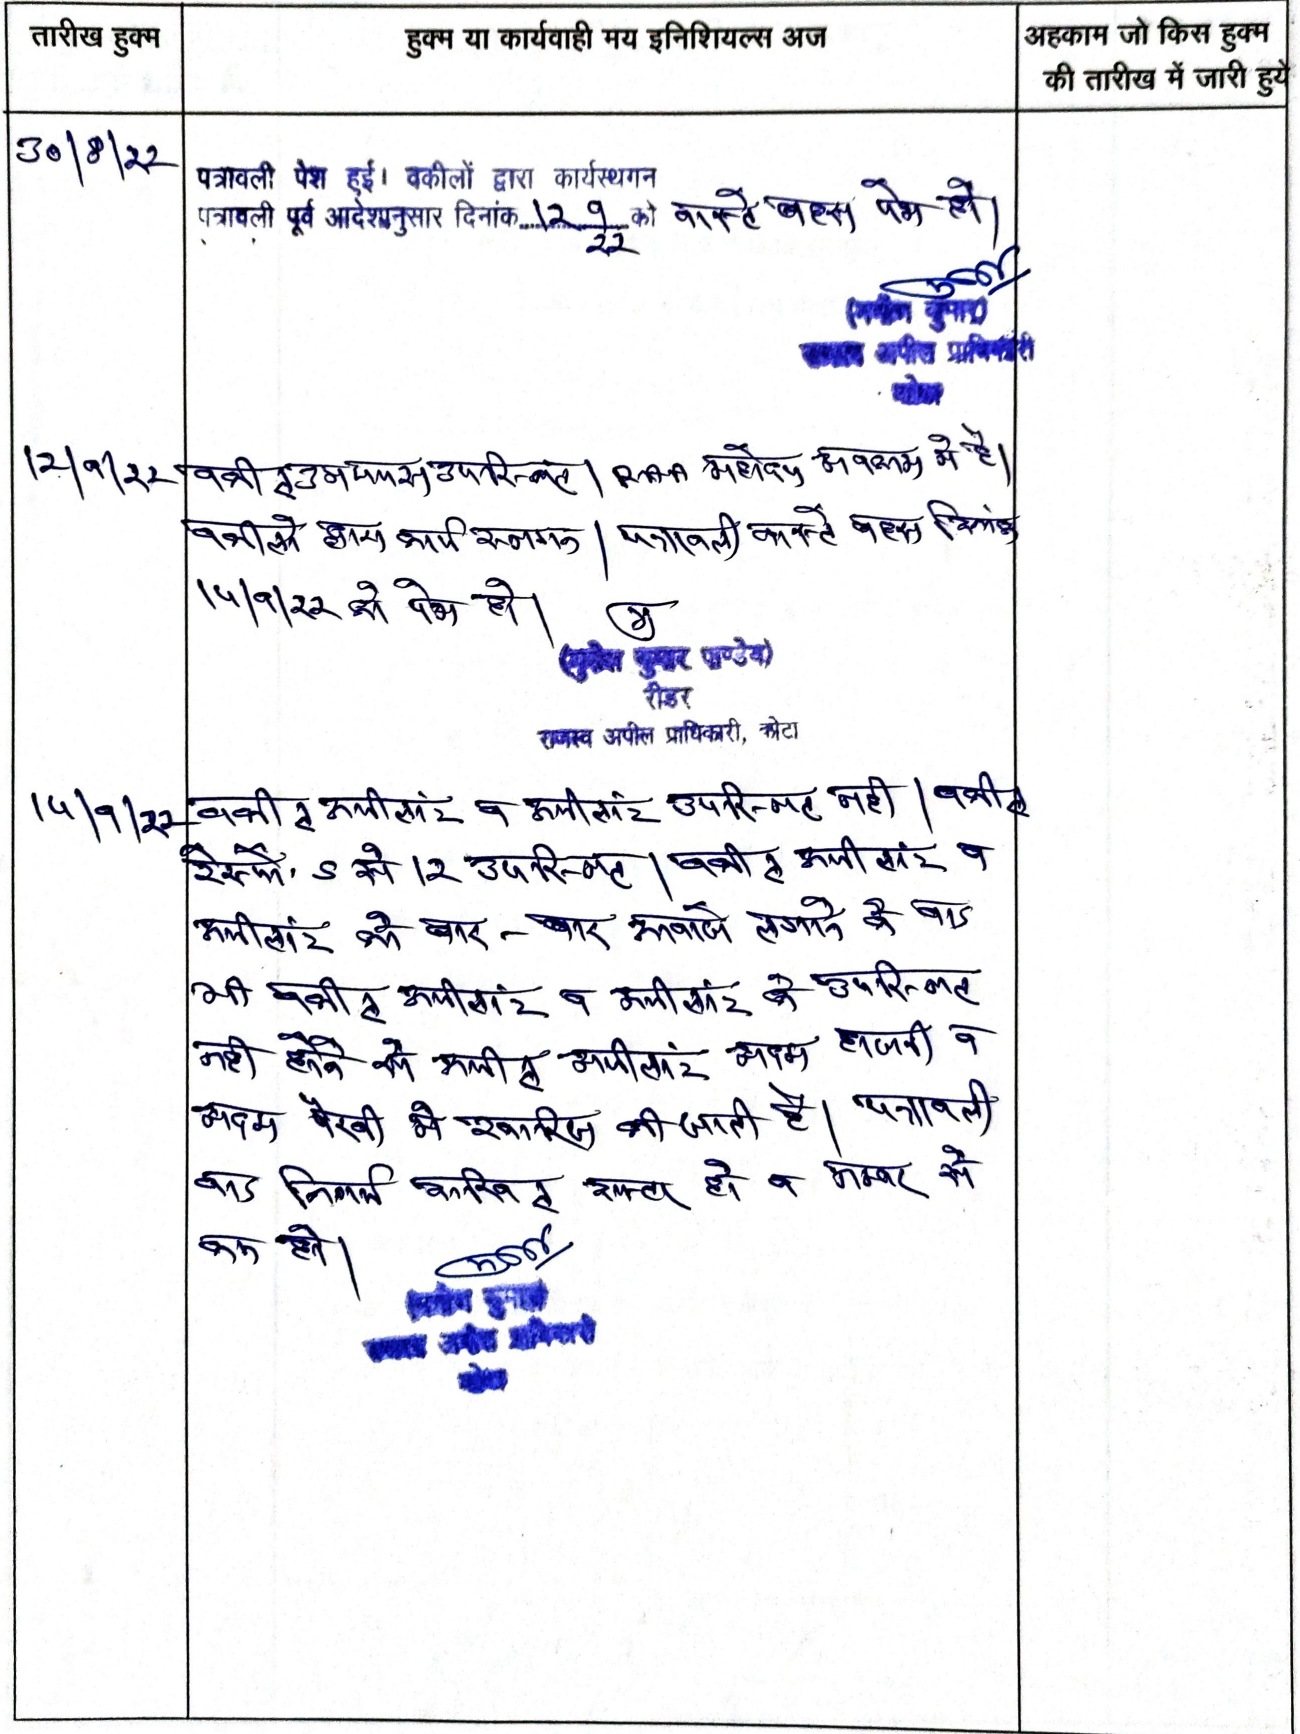 तारीख हुक्म
हुक्म या कार्यवाही मय इनिशियल्स अज
अहकाम जो किस हुक्म
की तारीख में जारी हुये
30/8/22
पत्रावली पेश हुई। वकीलों द्वारा कार्यस्थगन
पत्रावली पूर्व आदेशानुसार दिनांक 12 9/22 को वास्ते बहस पेश हो।
कुमार)
अपील प्राधिकारी
12/9/22 वकील उभयपक्ष उपस्थित। RAA महोदय अवकाश में है।
वकीलो द्वारा कार्य स्थगन। पत्रावली वास्ते बहस दिनांक
14/9/22 को पेश हो।
(मुकेश कुमार पाण्डेय)
रीडर
राजस्व अपील प्राधिकारी, कोटा
14/9/22 वकील अपीलांट व अपीलांट उपस्थित नही। वकील
रेस्पो. 5 से 12 उपस्थित। वकील अपीलांट व
अपीलांट को बार-बार आवाजे लगाने के बाद
भी वकील अपीलांट व अपीलांट के उपस्थित
नही होने से अपील अपीलांट अदम हाजरी व
अदम पैरवी मे खारिज की जाती है। पत्रावली
बाद निर्णय दाखिल दफ्तर हो व नम्बर से
कम हो।
कुमार)
अपील प्राधिकारी